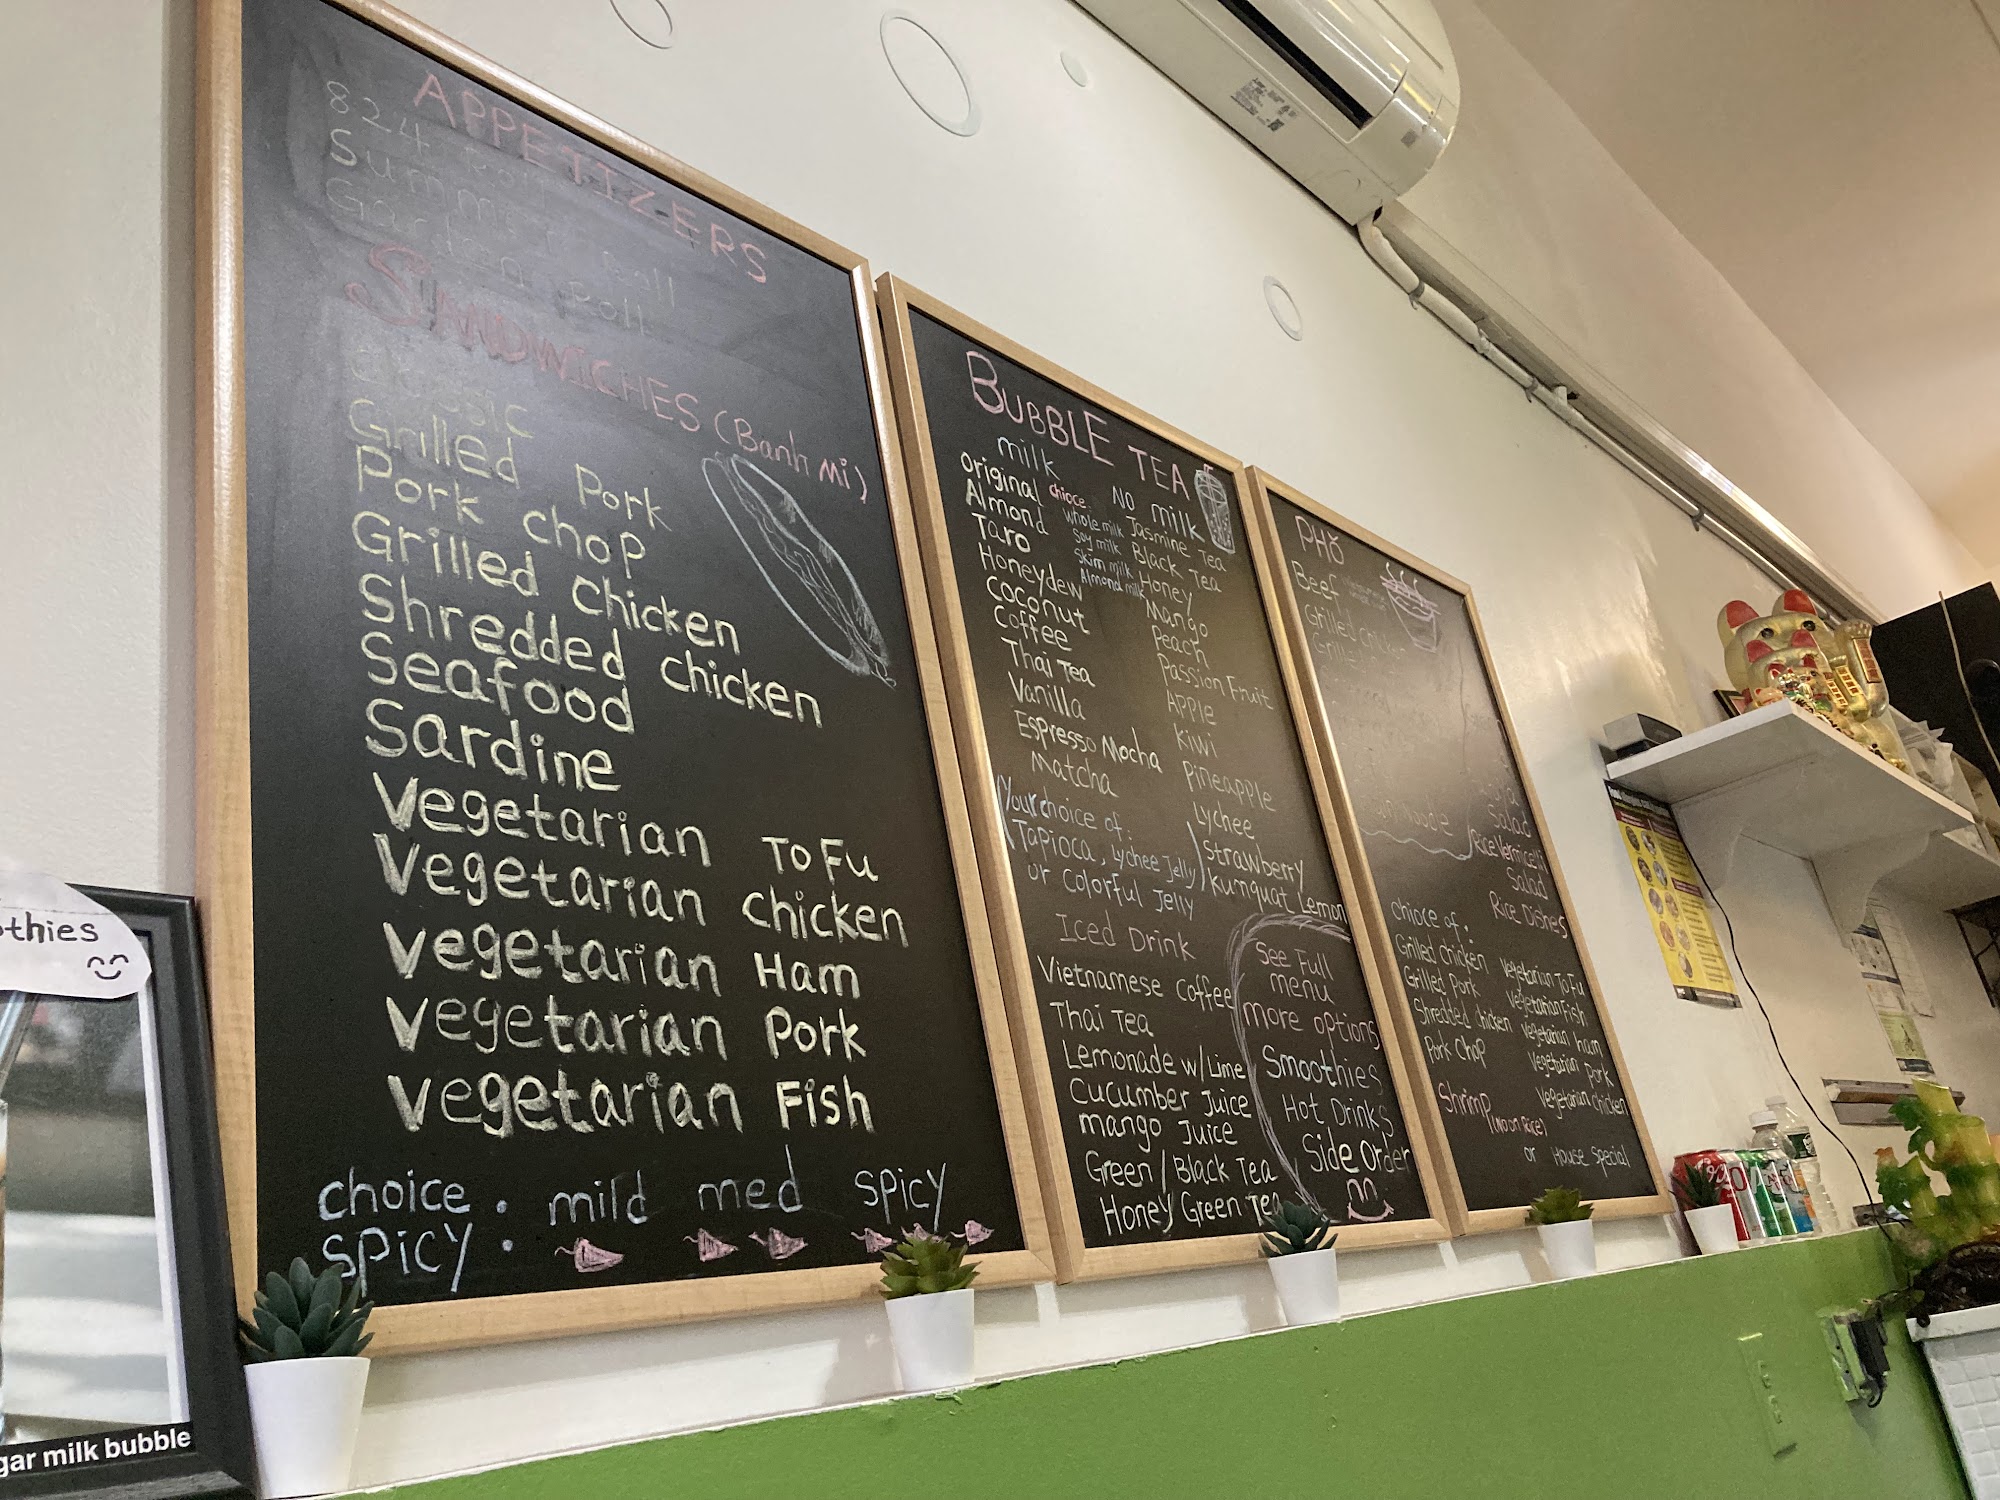 APPETIZERS
824 Roll
Summer Roll
Garden Roll
SANDWICHES (Banh Mi)
Classic
Grilled Pork
Pork chop
Grilled chicken
Shredded chicken
Seafood
Sardine
Vegetarian ToFu
Vegetarian chicken
Vegetarian Ham
Vegetarian Pork
Vegetarian Fish
choice : mild med spicy
spicy :
BUBBLE TEA
milk
Original
Almond
Taro
Honeydew
Coconut
Coffee
Thai Tea
Vanilla
Espresso Mocha
Matcha
chioce
whole milk
Soy milk
Skim milk
Almond milk
NO milk
Jasmine Tea
Black Tea
Honey
Mango
Peach
Passion Fruit
Apple
Kiwi
Pineapple
Lychee
Strawberry
Kumquat Lemon
(Your choice of:
Tapioca, Lychee Jelly)
or colorful Jelly
Iced Drink
Vietnamese Coffee
Thai Tea
Lemonade w/Lime
Cucumber Juice
mango Juice
Green / Black Tea
Honey Green Tea
See Full
menu
more options
Smoothies
Hot Drinks
Side Order
PHỞ
Beef
Grilled chicken
Noodle
Salad
Rice Vermicelli
Salad
Rice Dishes
chioce of :
Grilled chicken
Grilled Pork
Shredded chicken
Pork Chop
Shrimp (no on Rice)
Vegetarian ToFu
Vegetarian Fish
Vegetarian ham
Vegetarian Pork
Vegetarian chicken
or House Special
thies
gar milk bubble